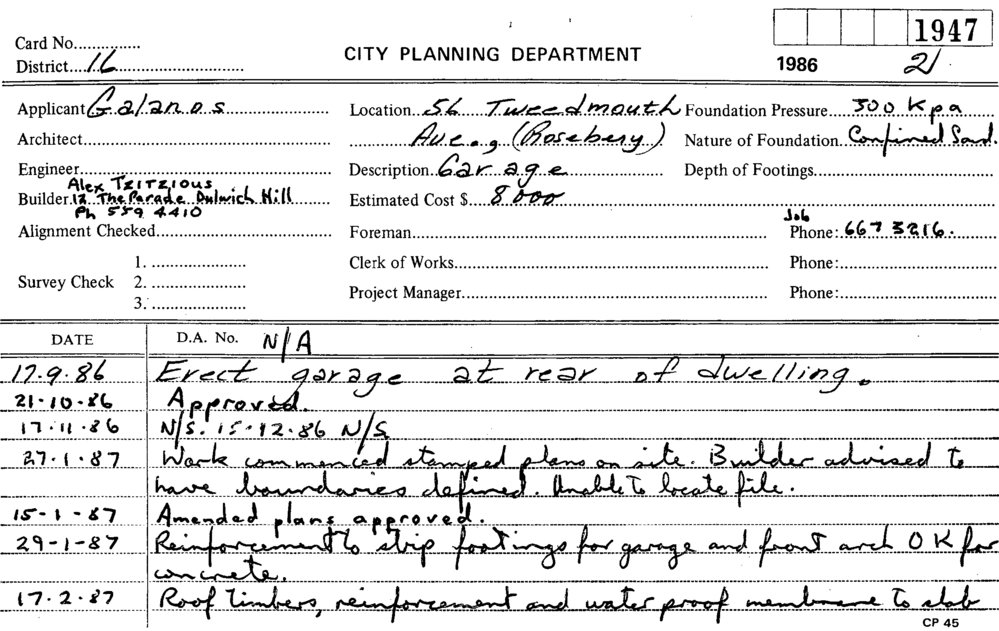 1947
Card No.
CITY PLANNING DEPARTMENT
District 16
1986
21
Applicant Galanos
Location 56 Tweedmouth
Foundation Pressure 300 Kpa
Architect
Ave., (Rosebery)
Nature of Foundation Confined Sand.
Engineer
Description Garage
Depth of Footings
Alex Tzitzious
Builder 12 The Parade Dulwich Hill
Ph 559 4410
Estimated Cost $ 8000
Alignment Checked
Foreman
Job
Phone: 667 3216.
1.
Clerk of Works
Phone:
Survey Check 2.
Project Manager
Phone:
3.
DATE D.A. No. N/A
17.9.86 Erect garage at rear of dwelling.
21-10-86 Approved.
17.11.86 N/S. 15-12-86 N/S
27.1.87 Work commenced stamped plans on site. Builder advised to
have boundaries defined. Unable to locate file.
15-1-87 Amended plans approved.
29-1-87 Reinforcement to strip footings for garage and front arch OK for
concrete.
17.2.87 Roof timbers, reinforcement and water proof membrane to slab
CP 45